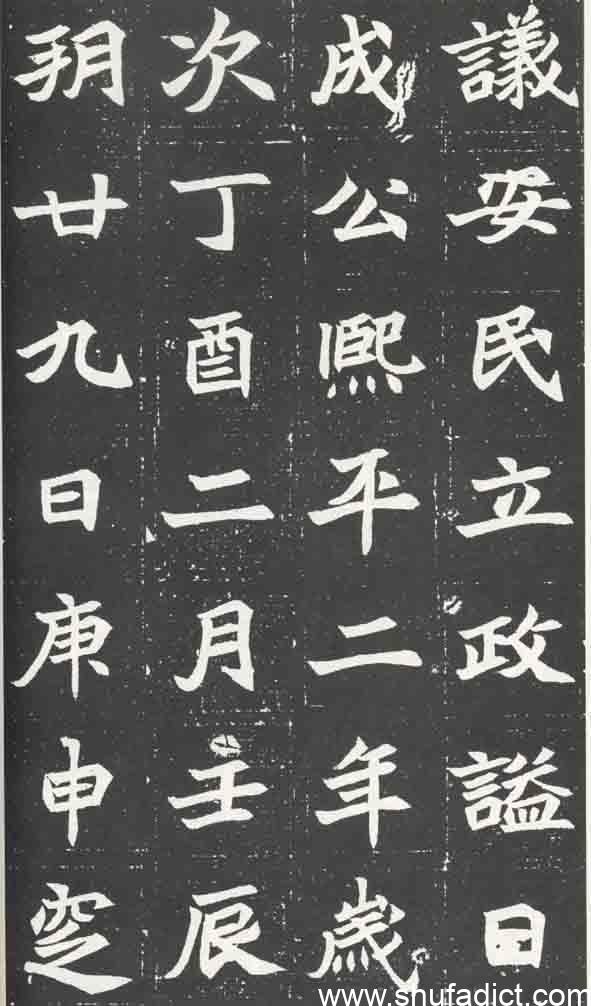 議安民立政謚曰
成公熙平二年歲
次丁酉二月壬辰
朔廿九日庚申窆
www.shufadict.com